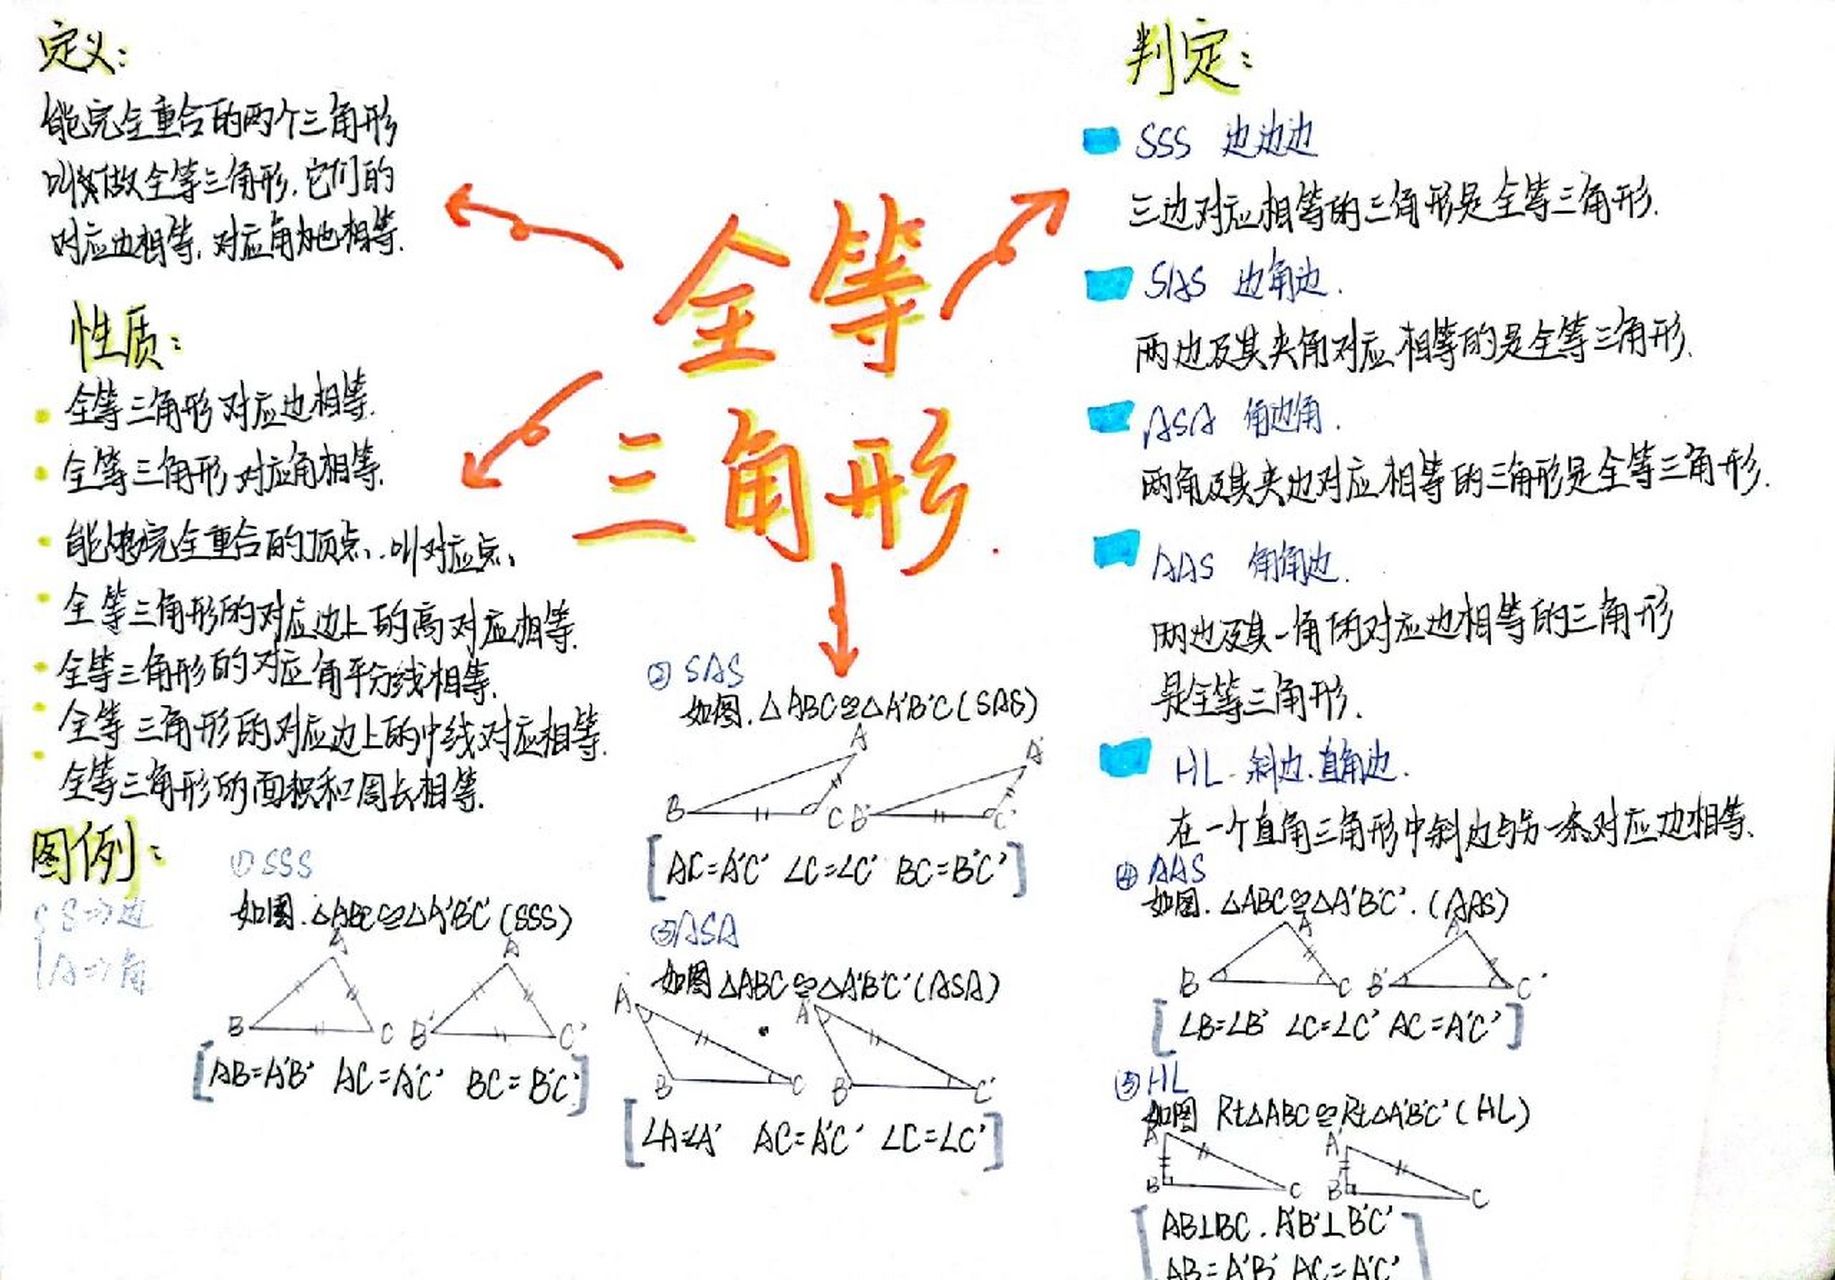 定义:
能完全重合的两个三角形
叫做全等三角形.它们的
对应边相等,对应角也相等.
性质:
全等三角形对应边相等.
全等三角形对应角相等.
能够完全重合的顶点,叫对应点,
全等三角形的对应边上的高对应相等.
全等三角形的对应角平分线相等.
全等三角形的对应边上的中线对应相等.
全等三角形的面积和周长相等.
图例:
S⇒边
A⇒角
①SSS
如图.△ABC≌△A'B'C'(SSS)
A A'
B C B' C'
[AB=A'B' AC=A'C' BC=B'C']
全等
三角形.
②SAS
如图.△ABC≌△A'B'C(SAS)
A A'
B C B' C'
[AC=A'C' ∠C=∠C' BC=B'C']
③ASA
如图△ABC≌△A'B'C'(ASA)
A A'
B C B' C'
[∠A=∠A' AC=A'C' ∠C=∠C']
判定:
SSS 边边边
三边对应相等的三角形是全等三角形.
SAS 边角边.
两边及其夹角对应相等的是全等三角形.
ASA 角边角.
两角及其夹边对应相等的三角形是全等三角形.
AAS 角角边.
两边及其一角的对应边相等的三角形
是全等三角形.
HL.斜边.直角边.
在一个直角三角形中斜边与另一条对应边相等.
④AAS
如图.△ABC≌△A'B'C'.(AAS)
A A'
B C B' C'
[∠B=∠B' ∠C=∠C' AC=A'C']
⑤HL
如图 Rt△ABC≌Rt△A'B'C'(HL)
A A'
B C B' C
[AB⊥BC.A'B'⊥B'C'
AB=A'B' AC=A'C']